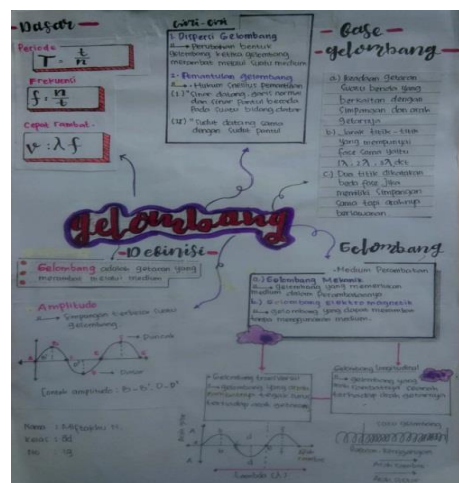 -Dasar-
Periode
T = t/n
Frekuensi
f = n/t
Cepat Rambat.
v : λ . f
Ciri-ciri
1. Dispersi Gelombang
→ Perubahan bentuk
gelombang ketika gelombang
merambat melalui suatu medium
2. Pemantulan gelombang
→ Hukum Pemantulan
(I) "Sinar datang, garis normal
dan sinar pantul berada
Pada suatu bidang datar
(II) "Sudut datang sama
dengan sudut pantul
-Fase-
-gelombang-
a) Keadaan getaran
suatu benda yang
berkaitan dengan
simpangan dan arah
getarnya
b) Jarak titik-titik
yang mempunyai
fase sama yaitu
1λ, 2λ, 3λ dst
c) Dua titik dikatakan
beda fase jika
memiliki simpangan
sama tapi arahnya
berlawanan
gelombang
-Definisi-
Gelombang adalah getaran yang
merambat melalui medium
Amplitudo
→ Simpangan terbesar suatu
gelombang
Puncak
Dasar
Contoh amplitudo : B-B', D-D'
Nama :
Kelas :
No : 19
Gelombang
-Medium Perambatan
a.) Gelombang Mekanik
→ gelombang yang memerlukan
medium dalam Perambatannya
b.) Gelombang elektromagnetik
→ gelombang yang dapat merambat
tanpa menggunakan medium.
Gelombang transversal
→ gelombang yang arah
rambatannya tegak lurus
terhadap arah getarnya
Gelombang longitudinal
→ gelombang yang
arah rambatnya searah
terhadap arah getarnya
Rapatan Renggangan
Arah rambat
Arah getar